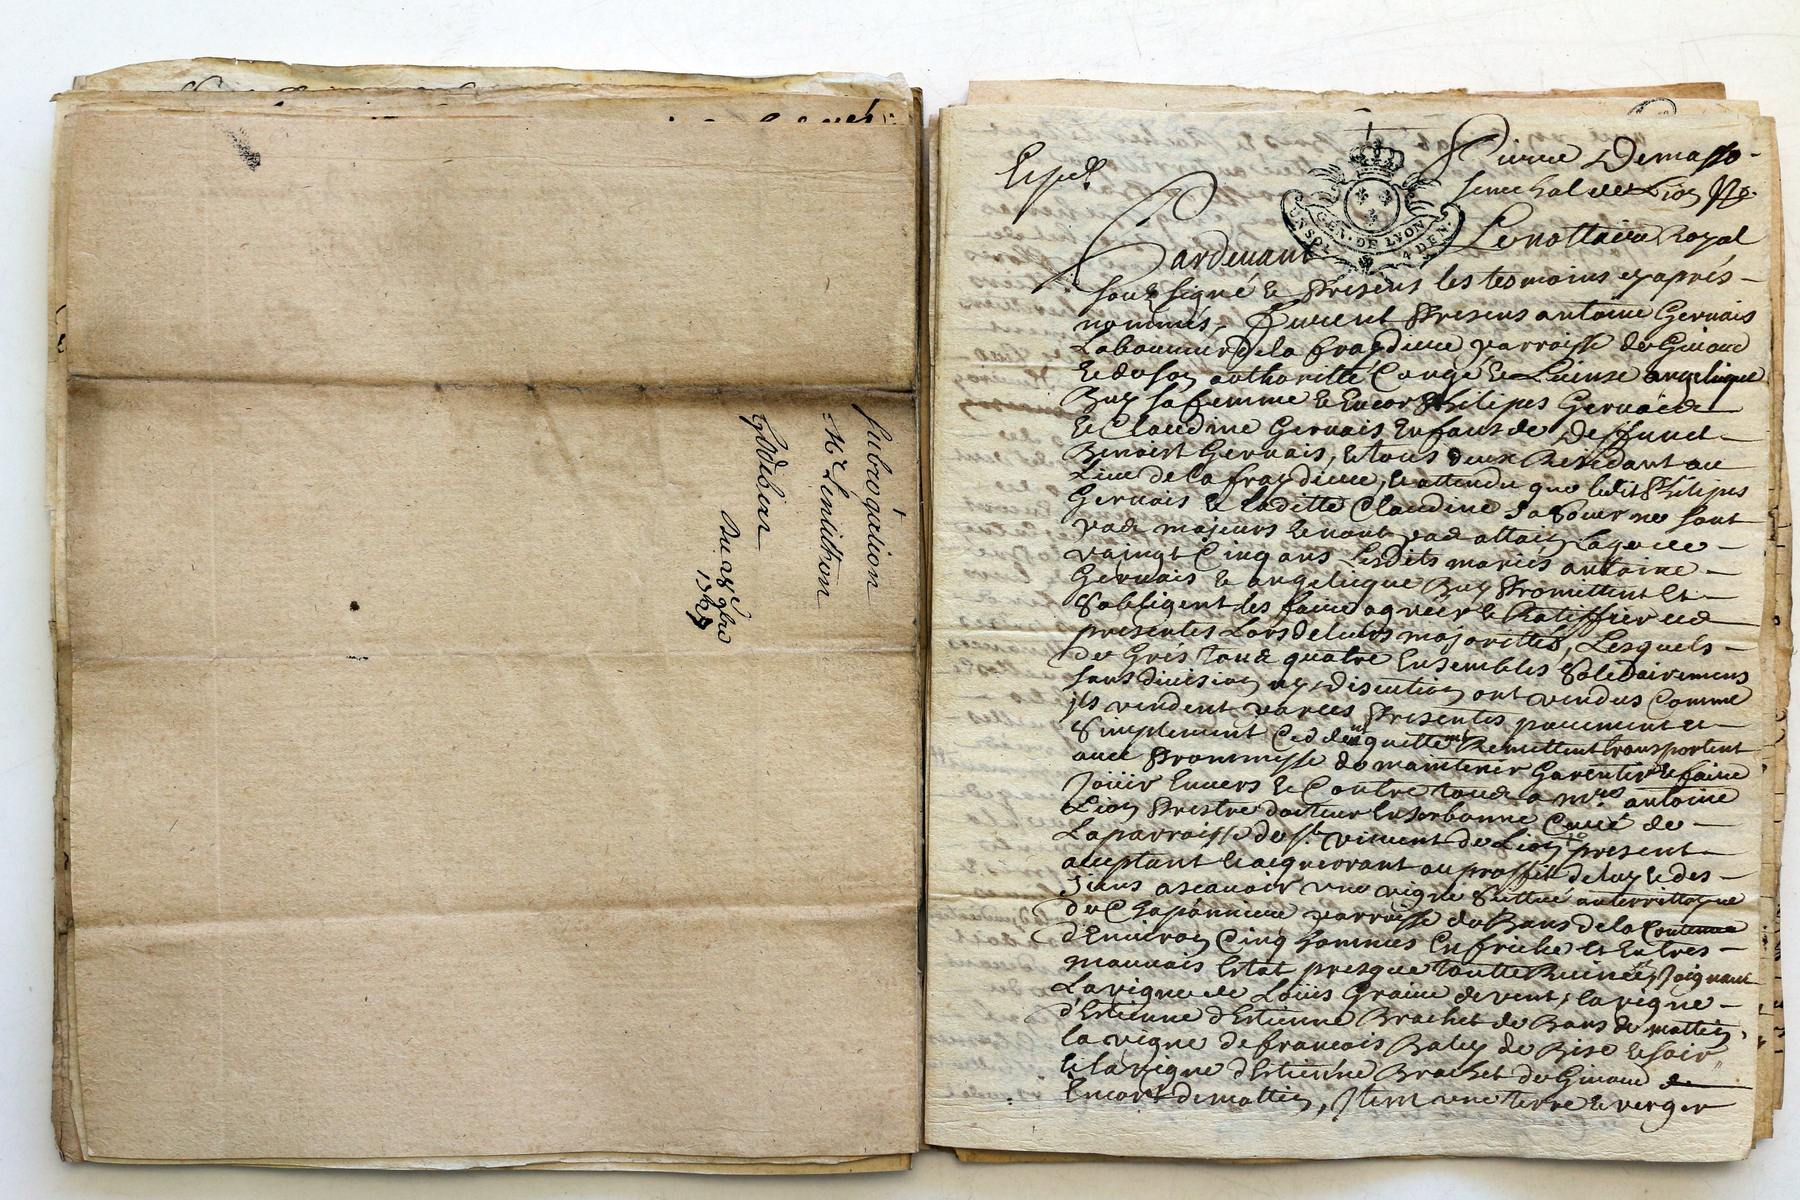 subrogation
Mr
Du 28e 9bre
Expedn
Pierre Demasso-
senechal de Lion
GEN. DE LYON
DEN.
Pardevant Le nottaire Royal
soubsigné & presens les tesmoins cy aprés-
nommés, furent presens antoine Gervais
Laboureur de la fraydiere parroisse de Givord
& de son authoritté Congé & License angelique
Buy sa femme & Encor Philipes Gervais
& Claudine Gervais Enfans de Deffunct-
Benoist Gervais, & tous deux Residant au
Lieu de la fraydiere, & attendu que ledit Philipes
Gervais & Laditte Claudine sa sœur ne sont
pas majeurs & n'ont pas attain Lage de-
vaingt Cinq ans Lesdits mariés antoine-
Gervais & angelique Buy Promettent Et-
S'obligent les faire agreer & Ratiffier ces
presentes Lors de leurs majorittés, Lesquels-
de Grés tous quatre Ensembles Solidairement
sans division ny discution ont vendus Comme
ils vendent par ces Presentes purement et-
Simplement Ceddent quittent Remettent transportent
avec Prommesse de maintenir Garentir & faire
Joüir Envers & Contre tous a mre antoine
Lion Prestre docteur En sorbonne Curé de-
La parroisse de st vincent de Lion present-
aceptant & acquerrant au proffit de luy & des-
siens ascavoir une vigne Sittué au territtoire
de Chaponniere parroisse de Bans de la Contenue
d'Environ Cinq hommes En friche et En tres-
mauvais Estat presque toutte Ruinée, Joignant
La vigne de Loüis Graire de vent, la vigne-
d'Estienne d'Estienne Brachet de Bans de mattin,
la vigne de francois Baley de Bise & soir
& la vigne d'Estienne Brachet de Givord
Encore de mattin, Item une terre & verger